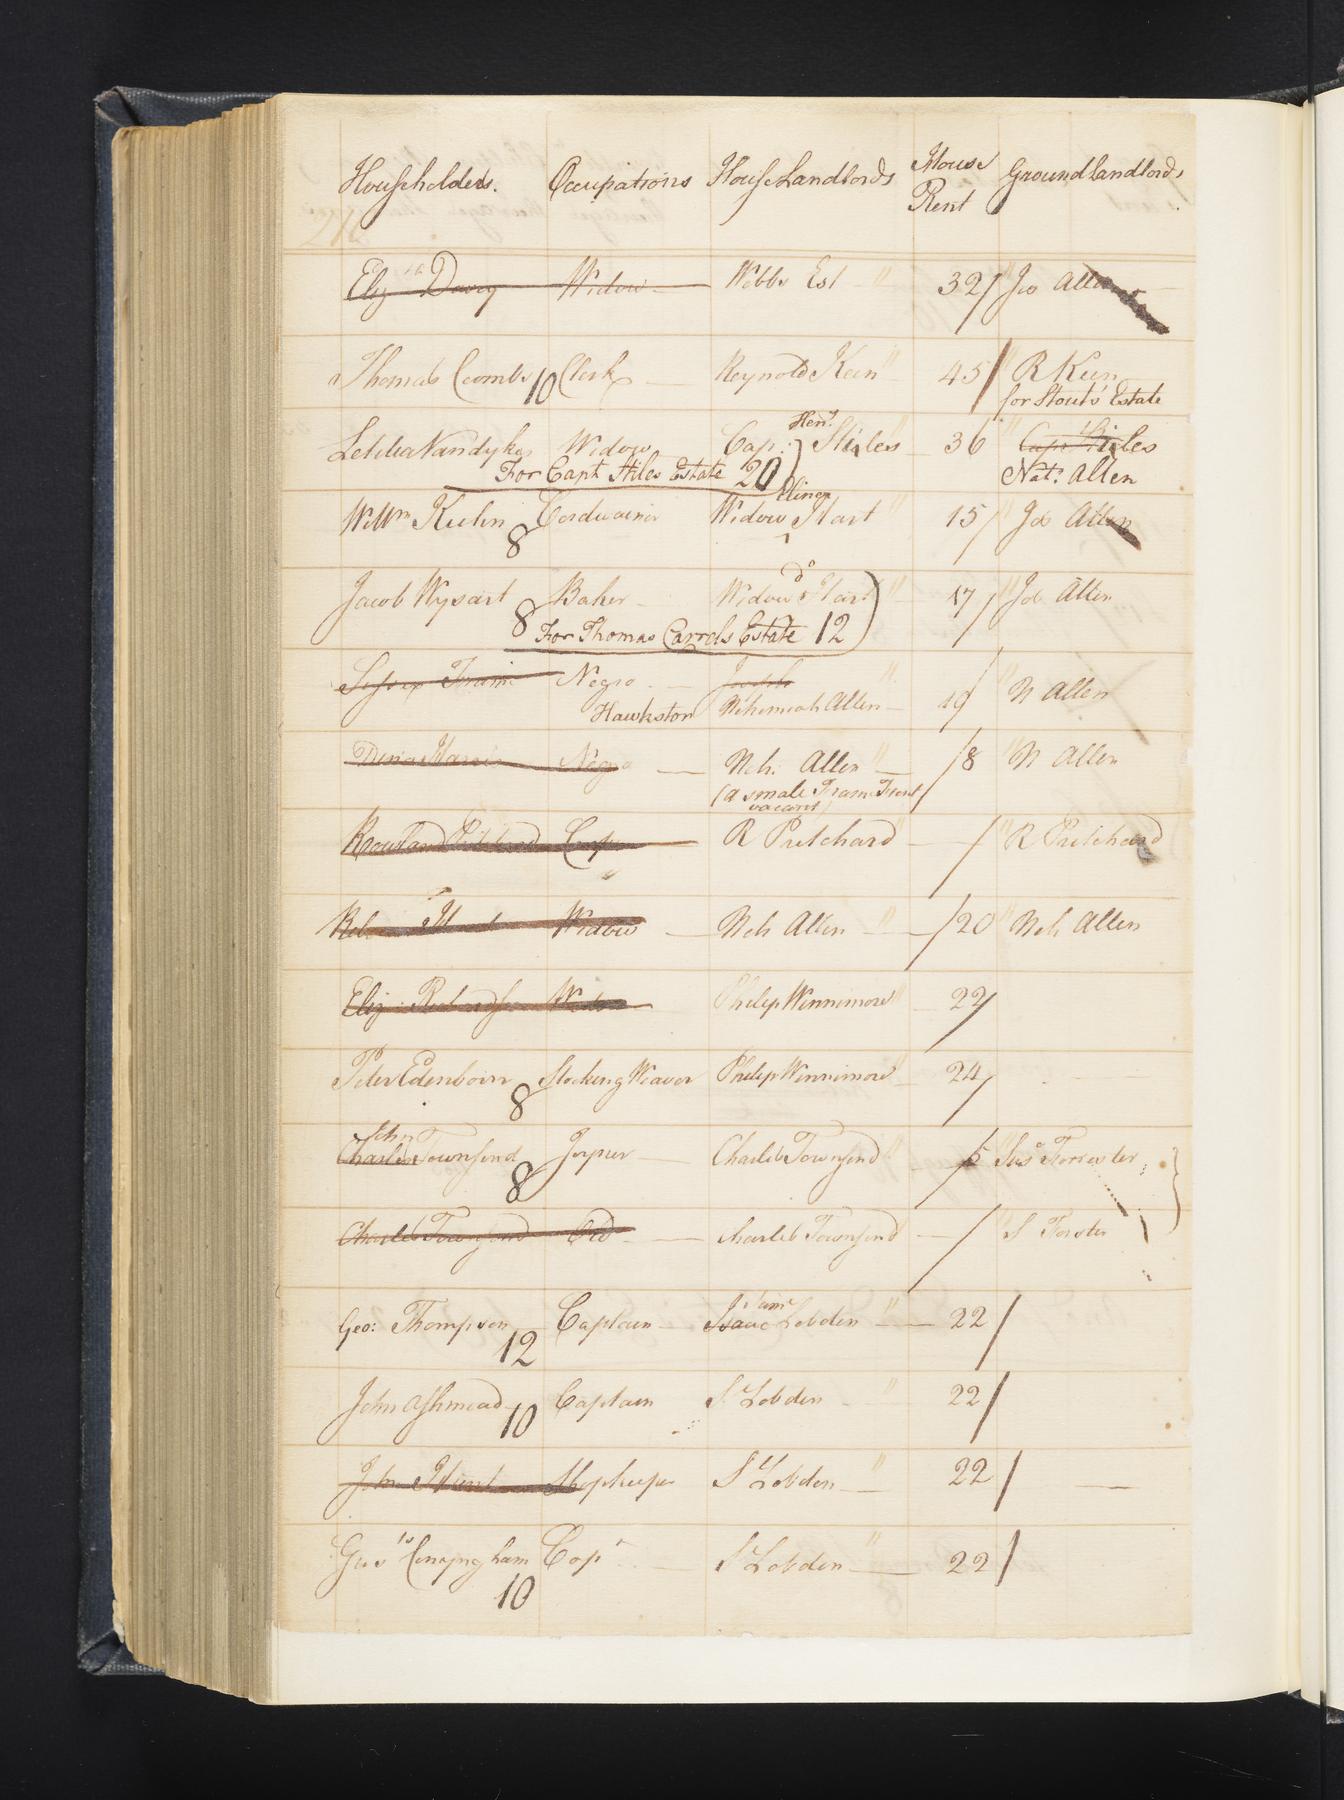 Householders. Occupations House Landlords House Rent Ground landlords
Eliz th Davey Widow Webbs Est " 32/ Jos Allen
Thomas Coombs 10 Clerk Reynold Keen " 45/ " R Keen
for Stouts Estate
Letitia Vandyke Widow Cap. Hen.y Stiles " 36 " Capt Stiles
For Capt Stiles Estate 20 Nat: Allen
Will.m Kuhn 8 Cordwainer Widow Elinor Hart " 15/ " Jos Allen
Jacob Wysart Baker Widow do Hart " 17/ " Jos Allen
8 For Thomas Carrels Estate 12
Negro Joseph
Hawkston Nehemiah Allen 19/ " N Allen
Dina Negro Neh. Allen " /8 " N Allen
(a small Frame Front
vacant)
Rowland Pritchard R Pritchard " / " R Pritchard
Widow Neh Allen " /20 " Neh Allen
Eliz Richardson Widow Philip Winnimore " 22/
Peter Edenborn 8 Stocking Weaver Philip Winnimore " 24/
John
Charles Townsend 8 Joyner Charles Townsend " /5 " Sus.a Forrester
Charles Townsend Do Charles Townsend " / " S Forster
Geo: Thompson 12 Captain Isaac Lobden " 22/
John Ashmead 10 Captain S. Lobden " 22/
John Hunt Shopkeeper S Lobden " 22/
Gus ts Conyngham 10 Cap t S Lobden " 22/